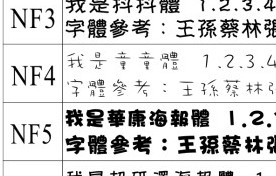 NF3
我是抖抖體 1.2.3.4
字體參考：王孫蔡林張
NF4
我是童童體 1.2.3.4
字體參考：王孫蔡林張
NF5
我是華康海報體 1.2.
字體參考：王孫蔡林